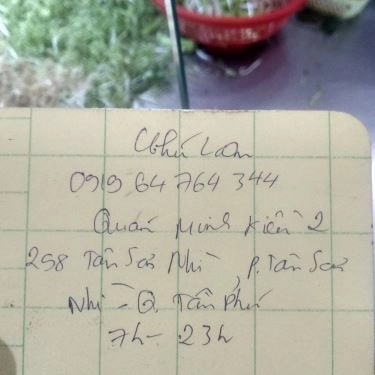 Chú Lam
0919 64 764 344
Quán Minh Kiên 2
298 Tân Sơn Nhì, P. Tân Sơn
Nhì - Q. Tân Phú
7h - 23h